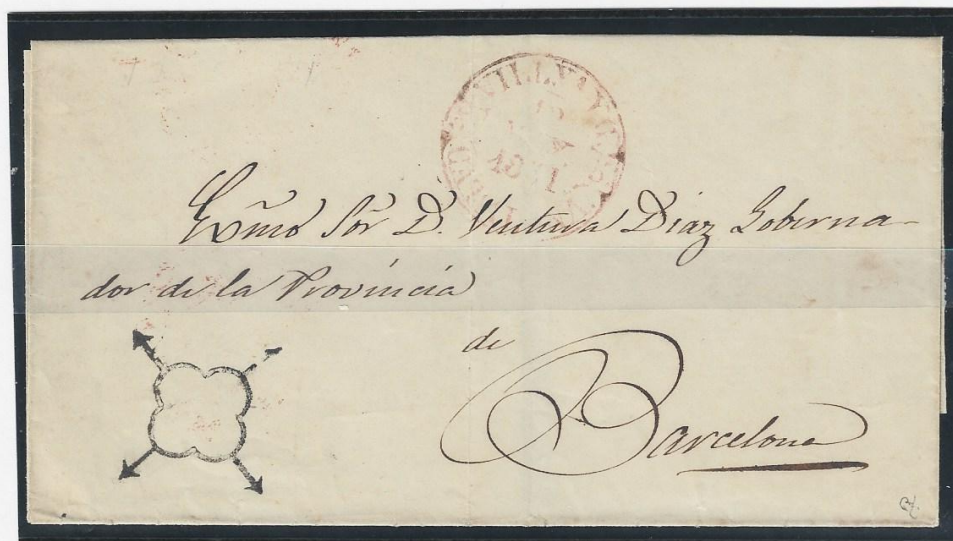 Exmo Sõr D. Ventura Diaz Goberna-
dor de la Provincia
de
Barcelona